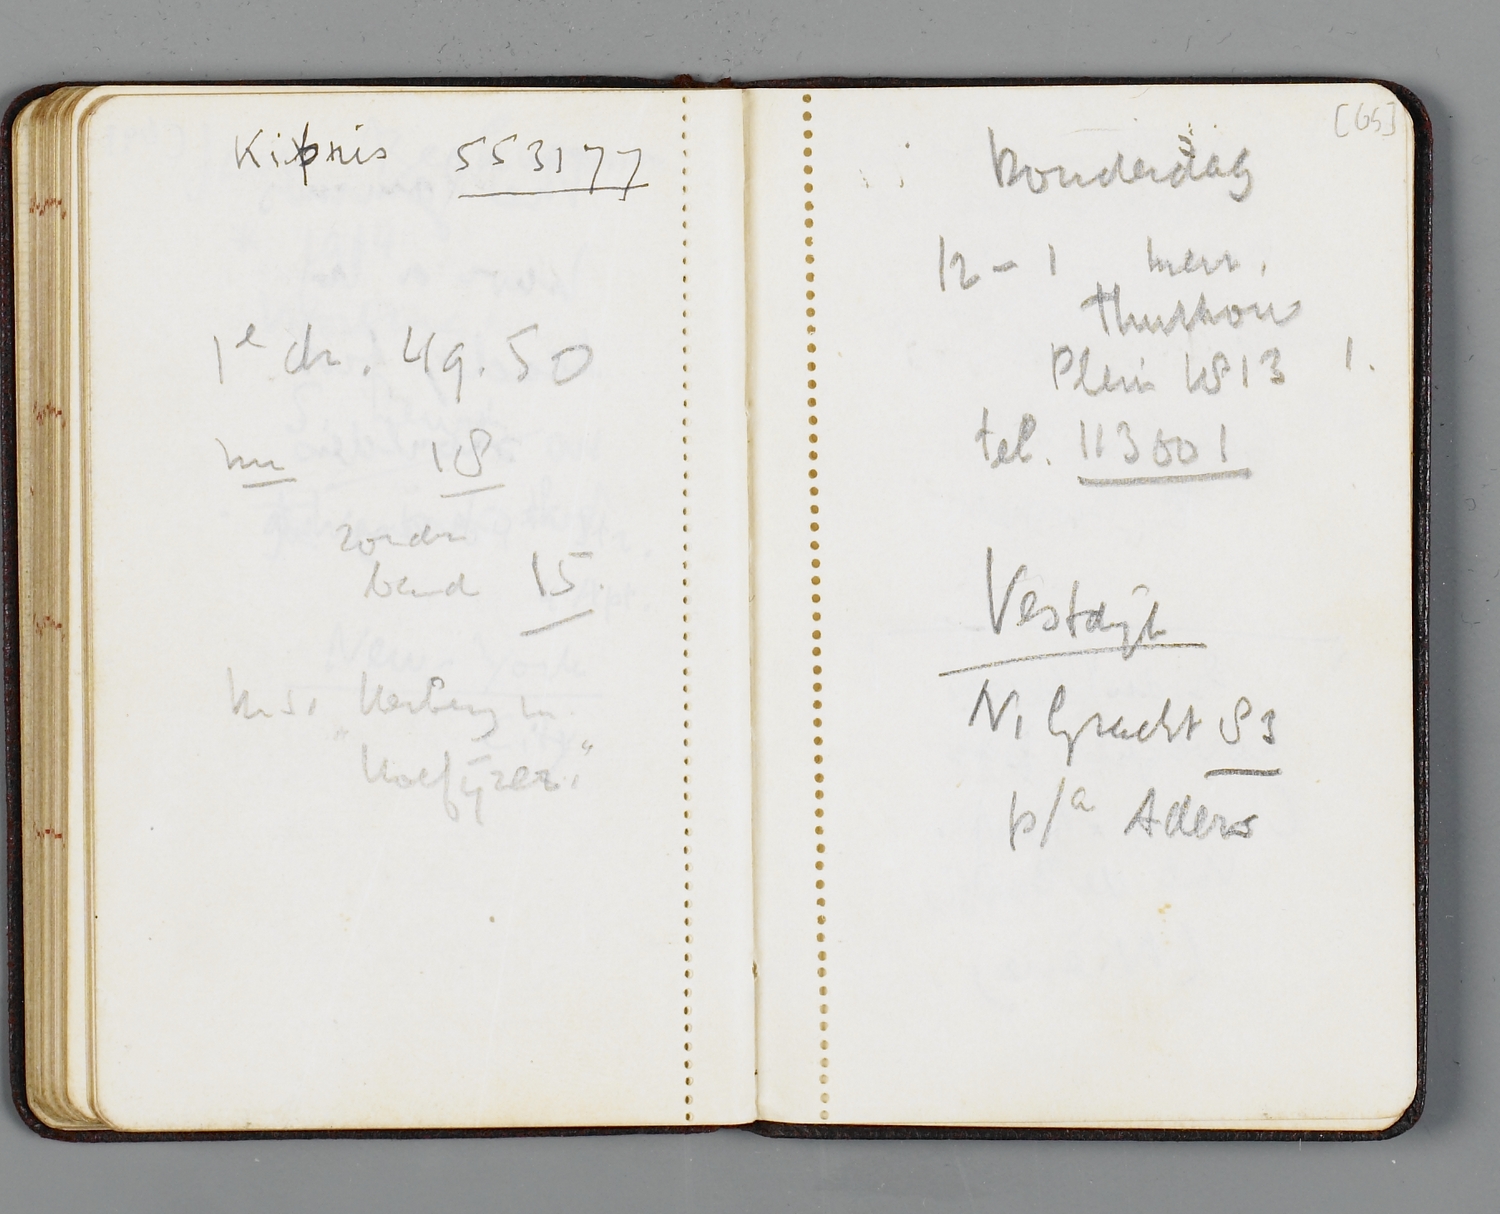 Kipnis 553177
1e dr. 49.50
nu 18
zonder
band 15.
"
Hoefijzer."
[65]
Donderdag
12 - 1 mevr.
Thurkow
Plein 1813 1.
tel. 113601
Vestdijk
N. Gracht 83
p/a Aders